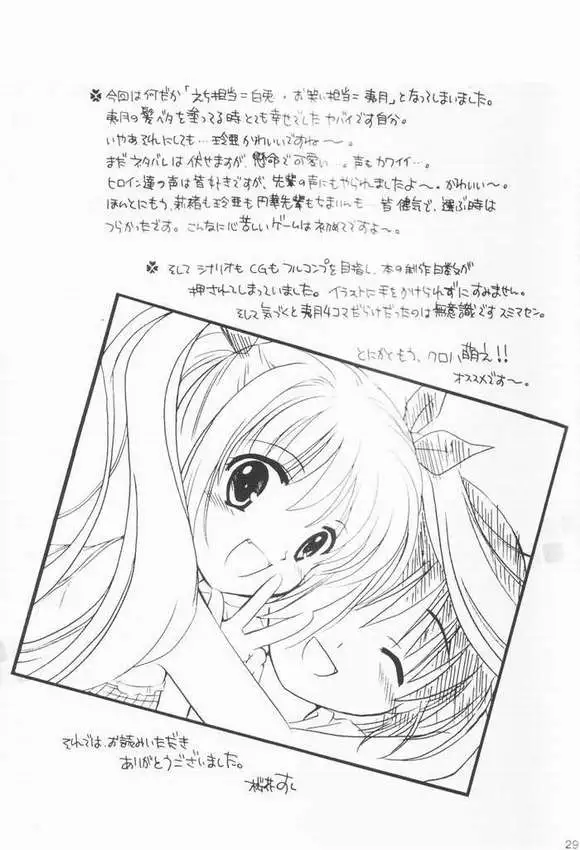 今回は何だか「えち担当=白兎・お笑い担当=夷月」となってしまいました。
夷月の髪ベタを塗ってる時とても幸せでした ヤバイです自分。
いやあそれにしても…玲亜かわいいですね～。
まだネタバレは伏せますが、懸命で可愛い…。声もカワイイ…。
ヒロイン達の声は皆好きですが、先輩の声にもやられましたよ～。かわいい～。
ほんとにもう、莉緒も玲亜も円華先輩もちまいんも…皆健気で、選ぶ時は
つらかったです。こんなに心苦しいゲームは初めてですよ～。
そしてシナリオもCGもフルコンプを目指し、本の制作日数が
押されてしまっていました。イラストに手をかけられずにすみません。
そして気づくと夷月4コマだらけだったのは無意識です スミマセン。
とにかくもう、クロハ萌え!!
オススメです～。
それでは、お読みいただき
ありがとうございました。
桜花すし
29